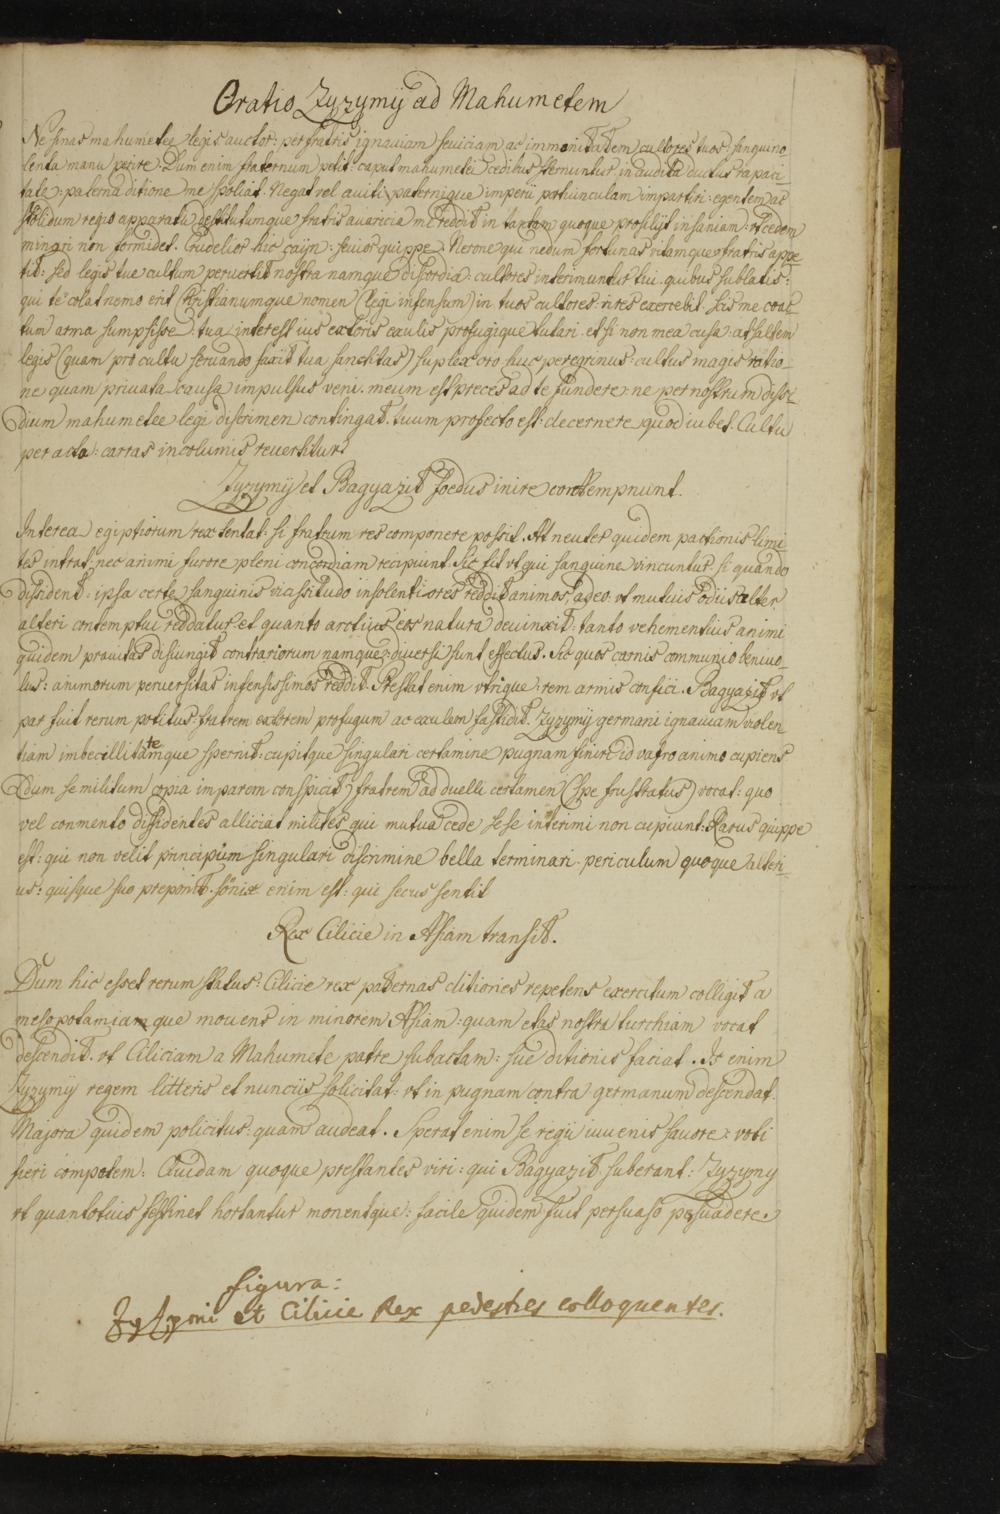 Oratio Zyzymÿ ad Mahumetem
Ne sinas mahumetee legis auctor: per fratris ignauiam seuiciam ac immanitatem cultores tuos sanguino-
lenta manu perire. Dum enim fraternum petit caput mahumetei cedibus sternuntur, inaudita ductus rapaci-
tate: paterna ditione me spoliat. Negat vel auiti paternique imperii portiunculam impartiri: egentem ac
stolidum regio apparatu destitutumque fratris auaricia me reddit in tantam quoque prosilÿt insaniam: vt cedem
minari non formidet. Crudelior hic cayn: seuior quippe Nerone qui nedum fortunas vitamque fratris appe-
tit: sed legis tue cultum peruertit nostra namque discordia: cultores interimuntur tui. quibus sublatis:
qui te colat nemo erit Christianumque nomen (legi infensum) in tuos cultores: vires exercebit. Scis me coac-
tum arma sumpsisse: tua interest ius extoris exulis profugique tutari. etsi non mea causa: at saltem
legis (quam pro cultu seruando saxit tua sanctitas) suplex oro huc peregrinus: cultus magis ratio-
ne quam priuata causa impulsus veni. meum est preces ad te fundere: ne per nostrum dissi-
dium mahumetee legi discrimen contingat. tuum profecto est: decernere quod iubet. Cultu
peracto: carras incolumis reuertitur.
Zyzymÿ et Bagyazit foedus inire contempnunt.
Interea egiptiorum rex tentat: si fratrum res componere possit. At neuter quidem pactionis limi-
tes intrat: nec animi furore pleni concordiam recipiunt. Sic fit vt qui sanguine vincuntur si quando
dissident: ipsa certe sanguinis vicissitudo insolentiores reddit animos, adeo: vt mutuis odiis alter
alteri contemptui reddatur et quanto arctius eos natura deuinxit: tanto vehementius animi
quidem prauitas disiungit contrariorum namque: diuersi sunt effectus. Sic quos carnis communio beniuo-
los: animorum peruersitas infensissimos reddit. Prestat enim vtrique: rem armis confici. Bagyazit vt
par fuit rerum potitus: fratrem extorem profugum ac exulem fastidit. Zyzymÿ germani ignauiam violen
tiam imbecillitatemque spernit: cupitque singulari certamine pugnam finire id vafro animo cupiens
Dum se militum copia imparem conspicit fratrem ad duelli certamen (spe frustratus) vocat: quo
vel conmento dissidentes alliciat milites qui mutua cede sese interimi non cupiunt: Rarus quippe
est: qui non velit principum singulari discrimine bella terminari. periculum quoque alteri-
us: quisque suo preponit. enim est: qui secus sentit
Rex Cilicie in Asiam transit.
Dum hic esset rerum status: Cilicie rex paternas ditiones repetens exercitum colligit a
mesopotamiamque mouens in minorem Asiam: quam etas nostra turchiam vocat
descendit. vt Ciliciam a Mahumete patre subactam: sue ditionis faciat. Is enim
Zyzymÿ regem litteris et nunciis solicitat: vt in pugnam contra germanum descendat.
Majora quidem policitus: quam audeat. Sperat enim se regii iuuenis fauore: voti
fieri compotem: Quidam quoque prestantes viri: qui Bagyazit suberant: Zyzymy
vt quantotius festinet hortantur monentque: facile quidem fuit persuaso persuadere.
figura:
Zyzymi et Cilicie Rex pedestres colloquentes.